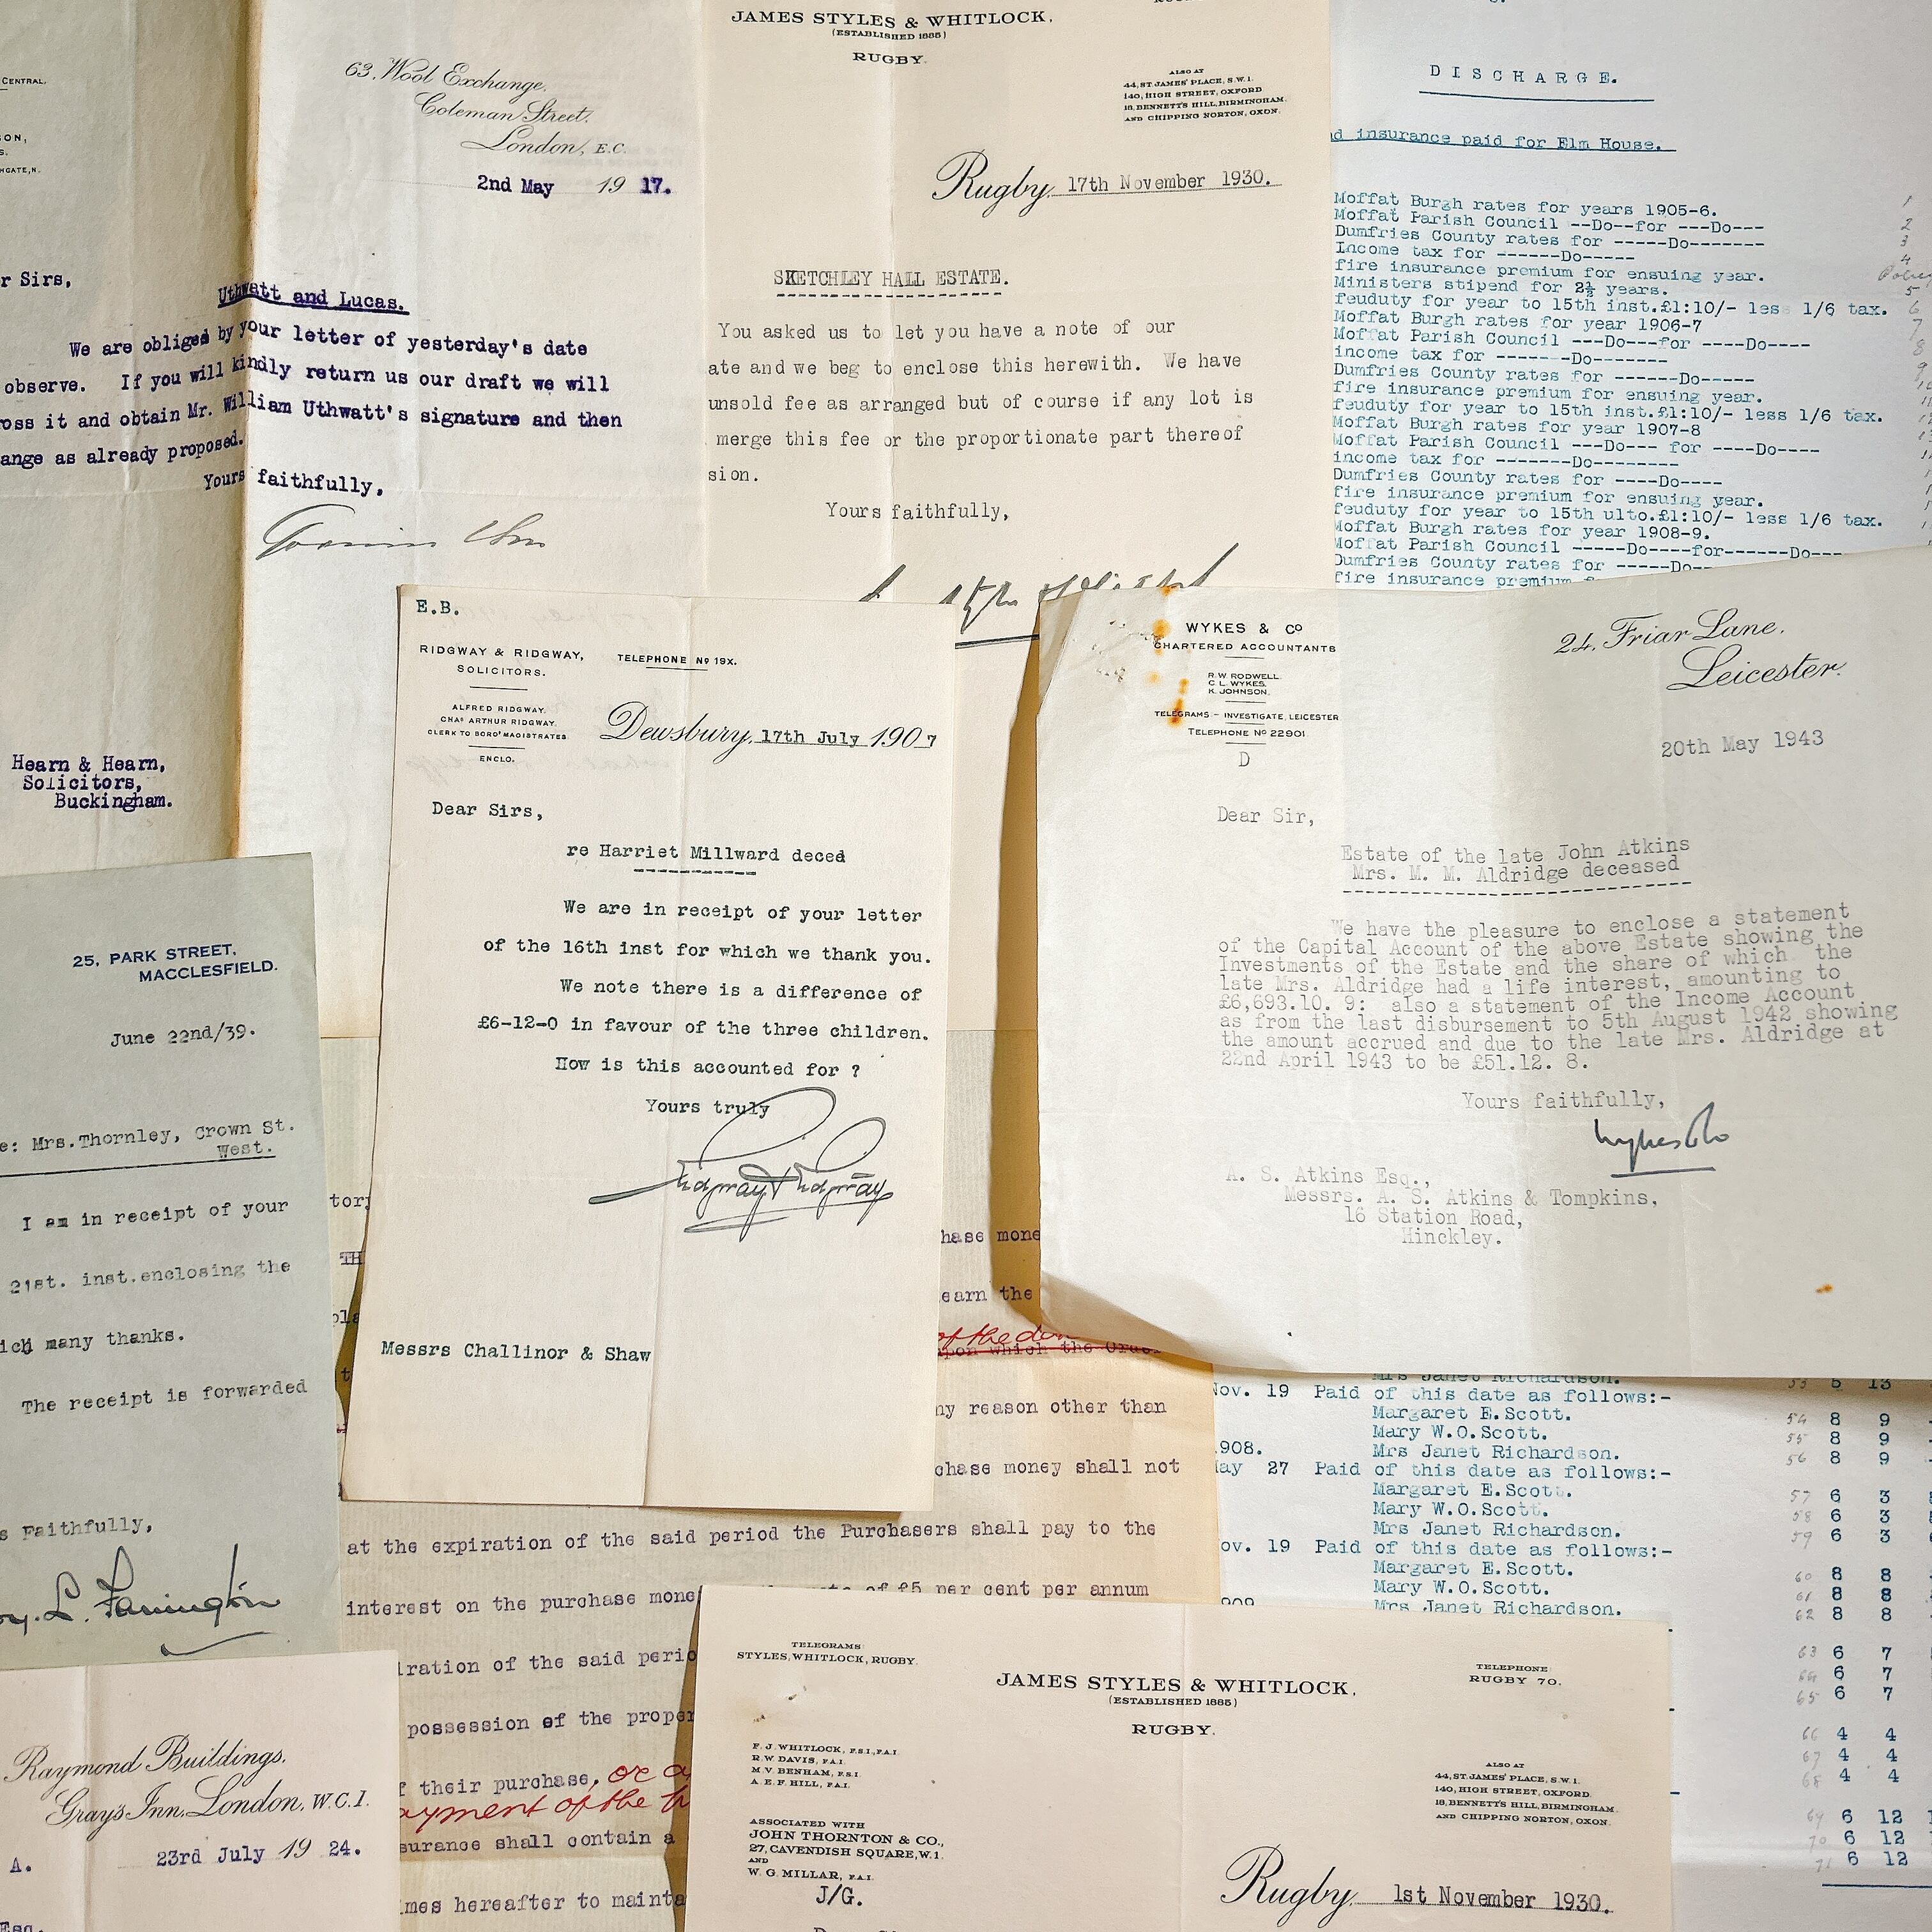 CENTRAL.
63, Wool Exchange,
Coleman Street,
London, E.C.
2nd May 19 17.
r Sirs,
Uthwatt and Lucas.
We are obliged by your letter of yesterday's date
observe. If you will kindly return us our draft we will
oss it and obtain Mr. William Uthwatt's signature and then
ange as already proposed.
Yours faithfully,
Hearn & Hearn,
Solicitors,
Buckingham.
JAMES STYLES & WHITLOCK,
(ESTABLISHED 1885)
RUGBY.
ALSO AT
44, ST JAMES' PLACE, S.W.1.
140, HIGH STREET, OXFORD
18, BENNETT'S HILL, BIRMINGHAM.
AND CHIPPING NORTON, OXON.
Rugby, 17th November 1930.
SKETCHLEY HALL ESTATE.
You asked us to let you have a note of our
ate and we beg to enclose this herewith. We have
unsold fee as arranged but of course if any lot is
merge this fee or the proportionate part thereof
sion.
Yours faithfully,
DISCHARGE.
d insurance paid for Elm House.
Moffat Burgh rates for years 1905-6.
Moffat Parish Council --Do--for ---Do---
Dumfries County rates for -----Do-------
Income tax for ------Do-----
fire insurance premium for ensuing year.
Ministers stipend for 2½ years.
feuduty for year to 15th inst.£1:10/- less 1/6 tax.
Moffat Burgh rates for year 1906-7
Moffat Parish Council ---Do---for ----Do----
income tax for -------Do-------
Dumfries County rates for ------Do-----
fire insurance premium for ensuing year.
feuduty for year to 15th inst.£1:10/- less 1/6 tax.
Moffat Burgh rates for year 1907-8
Moffat Parish Council ---Do--- for ----Do----
income tax for -------Do--------
Dumfries County rates for ----Do----
fire insurance premium for ensuing year.
feuduty for year to 15th ulto.£1:10/- less 1/6 tax.
Moffat Burgh rates for year 1908-9.
Moffat Parish Council -----Do----for------Do---
Dumfries County rates for ----Do--
fire insurance premium f
E.B.
RIDGWAY & RIDGWAY,
SOLICITORS.
TELEPHONE No 19X.
ALFRED RIDGWAY.
CHAs ARTHUR RIDGWAY.
CLERK TO BORO' MAGISTRATES
ENCLO.
Dewsbury, 17th July 1907
Dear Sirs,
re Harriet Millward deced
We are in receipt of your letter
of the 16th inst for which we thank you.
We note there is a difference of
£6-12-0 in favour of the three children.
How is this accounted for ?
Yours truly
Ridgway & Ridgway
Messrs Challinor & Shaw
WYKES & Co
CHARTERED ACCOUNTANTS
R.W. RODWELL.
C.L. WYKES.
K. JOHNSON.
TELEGRAMS – INVESTIGATE, LEICESTER
TELEPHONE No 22901.
D
24, Friar Lane,
Leicester.
20th May 1943
Dear Sir,
Estate of the late John Atkins
Mrs. M. M. Aldridge deceased
We have the pleasure to enclose a statement
of the Capital Account of the above Estate showing the
Investments of the Estate and the share of which the
late Mrs. Aldridge had a life interest, amounting to
£6,693.10. 9: also a statement of the Income Account
as from the last disbursement to 5th August 1942 showing
the amount accrued and due to the late Mrs. Aldridge at
22nd April 1943 to be £51.12. 8.
Yours faithfully,
Wykes & Co
A. S. Atkins Esq.,
Messrs. A. S. Atkins & Tompkins,
16 Station Road,
Hinckley.
25, PARK STREET,
MACCLESFIELD.
June 22nd/39.
e: Mrs.Thornley, Crown St.
West.
I am in receipt of your
21st. inst.enclosing the
ich many thanks.
The receipt is forwarded
s Faithfully,
L. Farrington
hase mone
earn the
of the
upon which the Order
ny reason other than
chase money shall not
at the expiration of the said period the Purchasers shall pay to the
interest on the purchase mone
of £5 per cent per annum
iration of the said perio
possession of the proper
f their purchase, or a
ayment of the
surance shall contain a
imes hereafter to mainta
Mrs Janet Richardson. 53 5 13
Nov. 19 Paid of this date as follows:-
Margaret E.Scott. 54 8 9
Mary W.O.Scott. 55 8 9
1908. Mrs Janet Richardson. 56 8 9
May 27 Paid of this date as follows:-
Margaret E.Scott. 57 6 3
Mary W.O.Scott. 58 6 3
Mrs Janet Richardson. 59 6 3
Nov. 19 Paid of this date as follows:-
Margaret E.Scott. 60 8 8
Mary W.O.Scott. 61 8 8
1909 Mrs Janet Richardson. 62 8 8
63 6 7
64 6 7
65 6 7
66 4 4
67 4 4
68 4 4
69 6 12
70 6 12
71 6 12
Raymond Buildings,
Gray's Inn, London, W.C.1.
23rd July 19 24.
A.
Esq.
TELEGRAMS
STYLES, WHITLOCK, RUGBY.
JAMES STYLES & WHITLOCK,
(ESTABLISHED 1885)
RUGBY.
TELEPHONE
RUGBY 70.
F. J. WHITLOCK, F.S.I., F.A.I.
R.W. DAVIS, F.A.I.
M.V. BENHAM, F.S.I.
A.E.F. HILL, F.A.I.
ASSOCIATED WITH
JOHN THORNTON & CO.,
27, CAVENDISH SQUARE, W.1.
AND
W. G. MILLAR, F.A.I.
J/G.
ALSO AT
44, ST. JAMES' PLACE, S.W.1.
140, HIGH STREET, OXFORD.
18, BENNETT'S HILL, BIRMINGHAM.
AND CHIPPING NORTON, OXON.
Rugby, 1st November 1930.